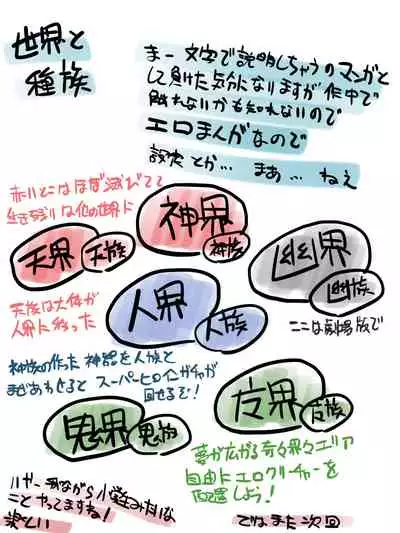 世界と
種族
まー文字で説明しちゃうのマンガと
して負けた気分になりますが作中で
触れないかも知れないので
エロまんがなので
設定とか… まぁ… ねぇ
赤いとこはほぼ滅びてて
生き残りは他の世界に
神界
神族
天界
天族
幽界
幽族
人界
人族
天族は大体が
人界に移った
ここは劇場版で
神族の作った神器を人族と
まぜあわせると スーパーヒロインガチャが
回せるぞ!
鬼界
鬼族
妖界
妖族
夢が広がる奇々界々エリア
自由にエロクリーチャーを
配置しよう!
いやー 我ながら小学生みたいな
ことやってますね!
楽しい
ではまた次回